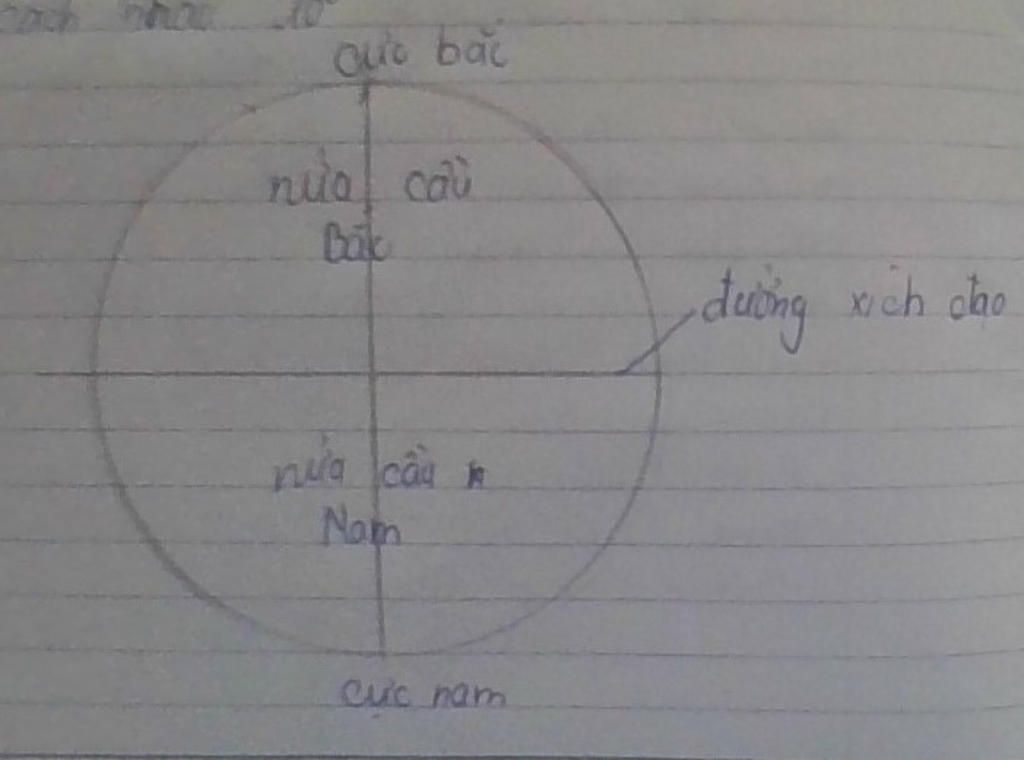 cách nhau 10°
cực bắc
nửa cầu
Bắc
đường xích đạo
nửa cầu
Nam
cực nam